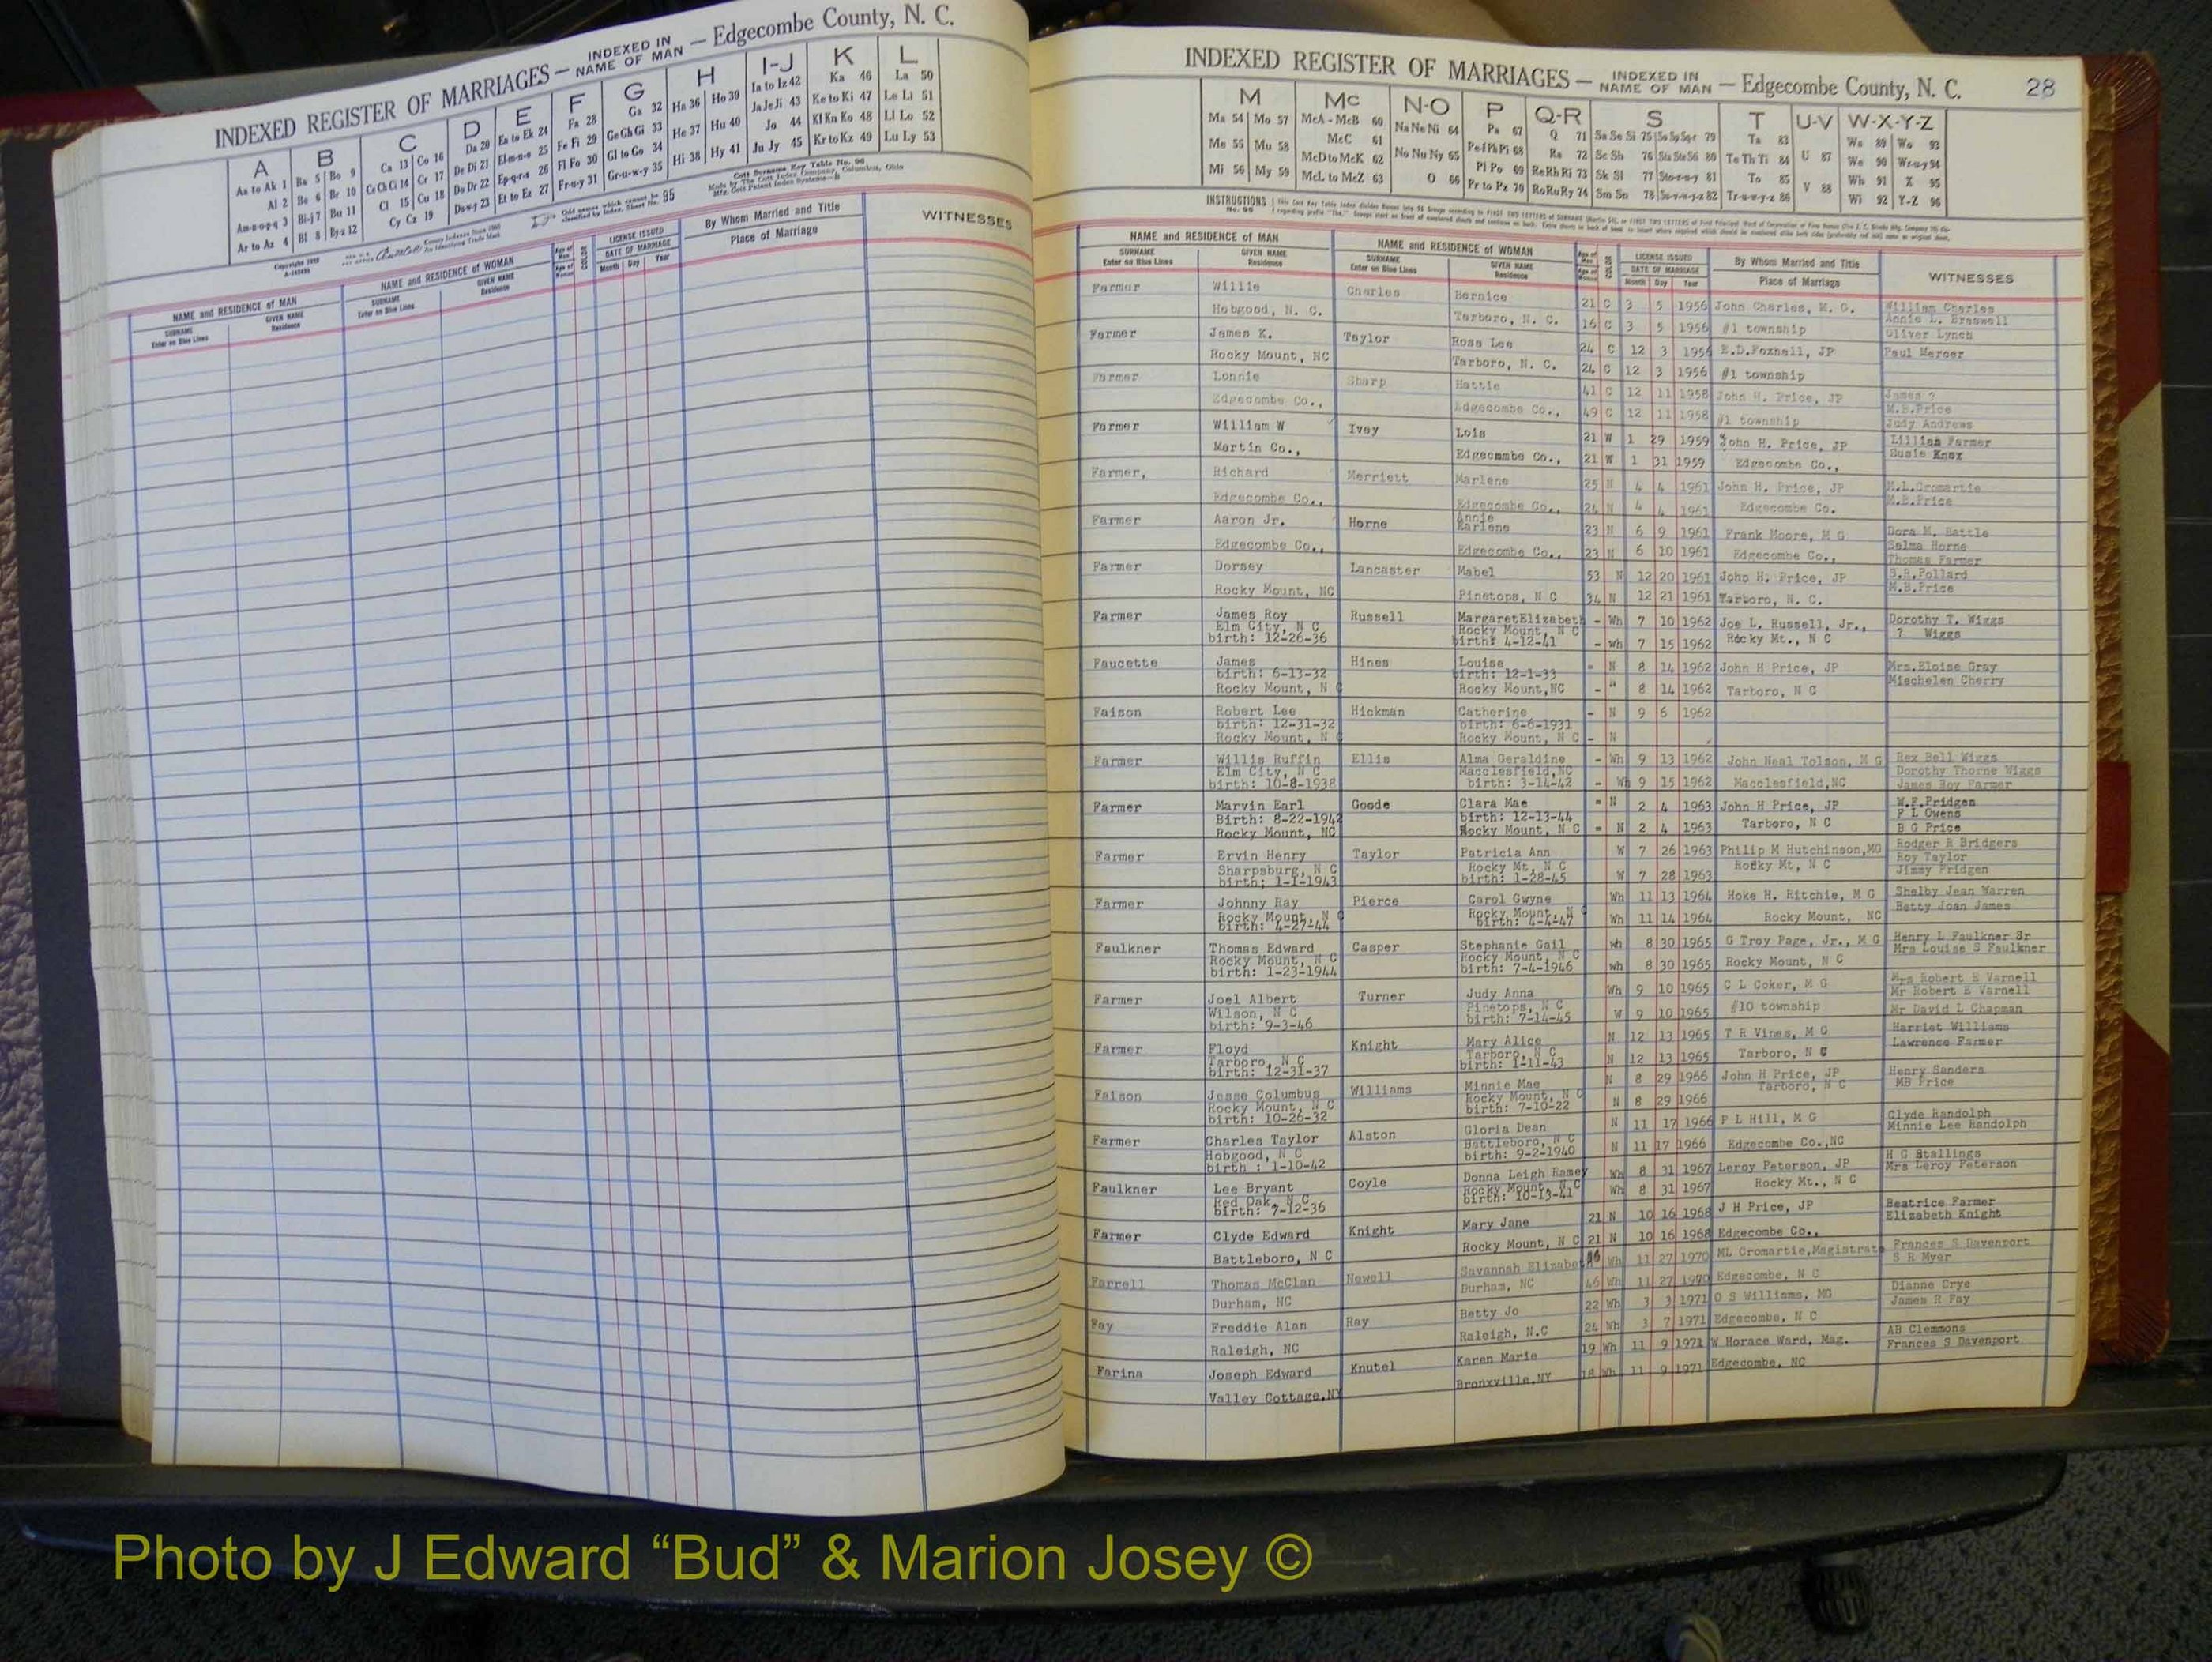 INDEXED REGISTER OF MARRIAGES — INDEXED IN NAME OF MAN — Edgecombe County, N. C.
A B C D E F G H I-J K L
Aa to Ak 1 Ba 5 Bo 9 Ca 13 Co 16 Da 20 Ea to Ek 24 Fa 28 Ga 32 Ha 36 Ho 39 Ia to Iz 42 Ka 46 La 50
Al 2 Be 6 Br 10 Ce Ch Ci 14 Cr 17 De Di 21 El-m-n-o 25 Fe Fi 29 Ge Gh Gi 33 He 37 Hu 40 Ja Je Ji 43 Ke to Ki 47 Le Li 51
Am-n-o-p-q 3 Bi-j 7 Bu 11 Cl 15 Cu 18 Do Dr 22 Ep-q-r-s 26 Fl Fo 30 Gl to Go 34 Hi 38 Hy 41 Jo 44 Kl Kn Ko 48 Ll Lo 52
Ar to Az 4 Bl 8 By-z 12 Cy Cz 19 Du-w-y 23 Et to Ez 27 Fr-u-y 31 Gr-u-w-y 35 Ju Jy 45 Kr to Kz 49 Lu Ly 53
NAME and RESIDENCE of MAN NAME and RESIDENCE of WOMAN COLOR LICENSE ISSUED By Whom Married and Title WITNESSES
SURNAME GIVEN NAME SURNAME GIVEN NAME DATE OF MARRIAGE Place of Marriage
Enter on Blue Lines Residence Enter on Blue Lines Residence Month Day Year
INDEXED REGISTER OF MARRIAGES — INDEXED IN NAME OF MAN — Edgecombe County, N. C. 28
M Mc N-O P Q-R S T U-V W-X-Y-Z
Ma 54 Mo 57 McA - McB 60 Na Ne Ni 64 Pa 67 Q 71 Sa Se Si 75 So Sp Sq-r 79 Ta 83 Wa 89 Wo 93
Me 55 Mu 58 McC 61 No Nu Ny 65 Pe-f Ph Pi 68 Ra 72 Sc Sh 76 Sta Ste Sti 80 Te Th Ti 84 U 87 We 90 Wr-u-y 94
Mi 56 My 59 McD to McK 62 O 66 Pl Po 69 Re Rh Ri 73 Sk Sl 77 Sto-r-u-y 81 To 85 V 88 Wh 91 X 95
McL to McZ 63 Pr to Pz 70 Ro Ru Ry 74 Sm Sn 78 Su-v-w-y-z 82 Tr-u-w-y-z 86 Wi 92 Y-Z 96
NAME and RESIDENCE of MAN NAME and RESIDENCE of WOMAN COLOR LICENSE ISSUED By Whom Married and Title WITNESSES
SURNAME GIVEN NAME SURNAME GIVEN NAME DATE OF MARRIAGE Place of Marriage
Enter on Blue Lines Residence Enter on Blue Lines Residence Month Day Year
Farmer Willie Charles Bernice 21 C 3 5 1956 John Charles, M. G. William Charles
Hobgood, N. C. Tarboro, N. C. 16 C 3 5 1956 #1 township Annie L. Braswell
Oliver Lynch
Farmer James K. Taylor Rosa Lee 24 C 12 3 1956 E.D.Foxhall, JP Paul Mercer
Rocky Mount, NC Tarboro, N. C. 24 C 12 3 1956 #1 township
Farmer Lonnie Sharp Hattie 41 C 12 11 1958 John H. Price, JP James ?
Edgecombe Co., Edgecombe Co., 49 C 12 11 1958 #1 township M.B.Price
Judy Andrews
Farmer William W Ivey Lois 21 W 1 29 1959 John H. Price, JP Lillian Farmer
Martin Co., Edgecombe Co., 21 W 1 31 1959 Edgecombe Co., Susie Knox
Farmer, Richard Merriett Marlene 25 N 4 4 1961 John H. Price, JP M.L.Cromartie
Edgecombe Co., Edgecombe Co., 24 N 4 4 1961 Edgecombe Co. M.B.Price
Farmer Aaron Jr. Horne Annie Earlene 23 N 6 9 1961 Frank Moore, M G Dora M. Battle
Edgecombe Co., Edgecombe Co., 23 N 6 10 1961 Edgecombe Co., Selma Horne
Thomas Farmer
Farmer Dorsey Lancaster Mabel 53 N 12 20 1961 John H. Price, JP S.R.Pollard
Rocky Mount, NC Pinetops, N C 34 N 12 21 1961 Tarboro, N. C. M.B.Price
Farmer James Roy Russell MargaretElizabeth - Wh 7 10 1962 Joe L. Russell, Jr., Dorothy T. Wiggs
Elm City, N C Rocky Mount, N C ? Wiggs
birth: 12-26-36 birth: 4-12-41 - Wh 7 15 1962 Rocky Mt., N C
Faucette James Hines Louise - N 8 14 1962 John H Price, JP Mrs.Eloise Gray
birth: 6-13-32 birth: 12-1-33 Miechelen Cherry
Rocky Mount, N C Rocky Mount,NC - " 8 14 1962 Tarboro, N C
Faison Robert Lee Hickman Catherine - N 9 6 1962
birth: 12-31-32 birth: 6-6-1931
Rocky Mount, N C Rocky Mount, N C - N
Farmer Willis Ruffin Ellis Alma Geraldine - Wh 9 13 1962 John Neal Tolson, M G Rex Bell Wiggs
Elm City, N C Macclesfield,NC Dorothy Thorne Wiggs
birth: 10-8-1938 birth: 3-14-42 - Wh 9 15 1962 Macclesfield,NC James Roy Farmer
Farmer Marvin Earl Goode Clara Mae - N 2 4 1963 John H Price, JP W.F.Pridgen
Birth: 8-22-1942 birth: 12-13-44 F L Owens
Rocky Mount, NC Rocky Mount, N C - N 2 4 1963 Tarboro, N C B G Price
Farmer Ervin Henry Taylor Patricia Ann W 7 26 1963 Philip M Hutchinson,MG Rodger R Bridgers
Sharpsburg, N C Rocky Mt, N C Rocky Mt, N C Roy Taylor
birth: 1-1-1943 birth: 1-28-45 W 7 28 1963 Jimmy Pridgen
Farmer Johnny Ray Pierce Carol Gwyne Wh 11 13 1964 Hoke H. Ritchie, M G Shelby Jean Warren
Rocky Mount, N C Rocky Mount, N C Betty Joan James
birth: 4-27-44 birth: 4-4-47 Wh 11 14 1964 Rocky Mount, NC
Faulkner Thomas Edward Casper Stephanie Gail Wh 8 30 1965 G Troy Page, Jr., M G Henry L Faulkner Sr
Rocky Mount, N C Rocky Mount, N C Mrs Louise S Faulkner
birth: 1-23-1944 birth: 7-4-1946 Wh 8 30 1965 Rocky Mount, N C
Farmer Joel Albert Turner Judy Anna Wh 9 10 1965 C L Coker, M G Mrs Robert E Varnell
Wilson, N C Pinetops, N C Mr Robert E Varnell
birth: 9-3-46 birth: 7-14-45 W 9 10 1965 #10 township Mr David L Chapman
Farmer Floyd Knight Mary Alice N 12 13 1965 T R Vines, M G Harriet Williams
Tarboro, N C Tarboro, N C Lawrence Farmer
birth: 12-31-37 birth: 1-11-43 N 12 13 1965 Tarboro, N C
Faison Jesse Columbus Williams Minnie Mae N 8 29 1966 John H Price, JP Henry Sanders
Rocky Mount, N C Rocky Mount, N C Tarboro, N C MB Price
birth: 10-26-32 birth: 7-10-22 N 8 29 1966
Farmer Charles Taylor Alston Gloria Dean N 11 17 1966 P L Hill, M G Clyde Randolph
Hobgood, N C Battleboro, N C Minnie Lee Randolph
birth : 1-10-42 birth: 9-2-1940 N 11 17 1966 Edgecombe Co.,NC
Faulkner Lee Bryant Coyle Donna Leigh Ramey Wh 8 31 1967 Leroy Peterson, JP H G Stallings
Red Oak, N C Rocky Mount, N C Mrs Leroy Peterson
birth: 7-12-36 birth: 10-13-41 Wh 8 31 1967 Rocky Mt., N C
Farmer Clyde Edward Knight Mary Jane 21 N 10 16 1968 J H Price, JP Beatrice Farmer
Battleboro, N C Rocky Mount, N C 21 N 10 16 1968 Edgecombe Co., Elizabeth Knight
Farrell Thomas McClan Howell Savannah Elizabet Wh 11 27 1970 ML Cromartie,Magistrate Frances S Davenport
Durham, NC Durham, NC 46 Wh 11 27 1970 Edgecombe, N C S R Myer
Fay Freddie Alan Ray Betty Jo 22 Wh 3 3 1971 O S Williams, MG Dianne Crye
Raleigh, NC Raleigh, N.C 24 Wh 3 7 1971 Edgecombe, N C James R Fay
Farina Joseph Edward Knutel Karen Marie 19 Wh 11 9 1971 W Horace Ward, Mag. AB Clemmons
Valley Cottage,NY Bronxville,NY 18 Wh 11 9 1971 Edgecombe, NC Frances S Davenport
Photo by J Edward “Bud” & Marion Josey ©